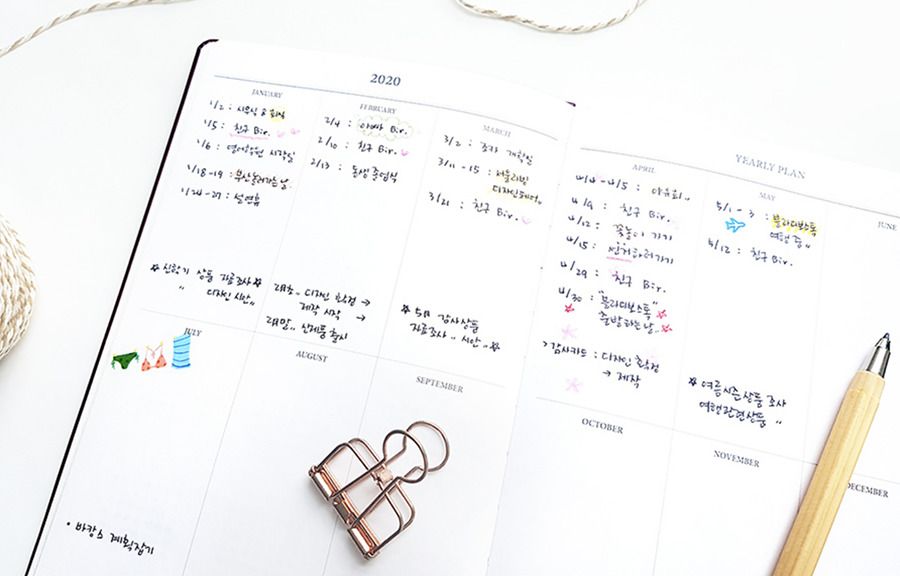 2020
YEARLY PLAN
JANUARY
1/2 : 시무식 & 회식
1/5 : 친구 Bir.
1/6 : 영어학원 시작일
1/18-19 : 부산놀러가는날
1/24-27 : 설연휴
☆ 신학기 상품 자료조사 ☆
" 디자인 시안"
FEBRUARY
2/4 : 아빠 Bir.
2/10 : 친구 Bir.
2/13 : 동생 졸업식
2月초.. 디자인 확정 →
제작 시작 →
2月말.. 신제품 출시
MARCH
3/2 : 조카 개학일
3/11-15 : 서울리빙
디자인페어..
3/21 : 친구 Bir.
☆ 5月 감사상품
자료조사.. 시안.. ☆
APRIL
4/4-4/5 : 야유회..
4/9 : 친구 Bir.
4/12 : 꽃놀이 가기
4/15 : 선거하러가기
4/29 : 친구 Bir.
4/30 : "블라디보스톡"
출발하는날..
>감사카드 : 디자인 확정
→ 제작
MAY
5/1-3 : 블라디보스톡
여행 중..
5/12 : 친구 Bir.
☆ 여름시즌상품 조사
여행관련상품..
JUNE
JULY
• 바캉스 계획잡기
AUGUST
SEPTEMBER
OCTOBER
NOVEMBER
DECEMBER